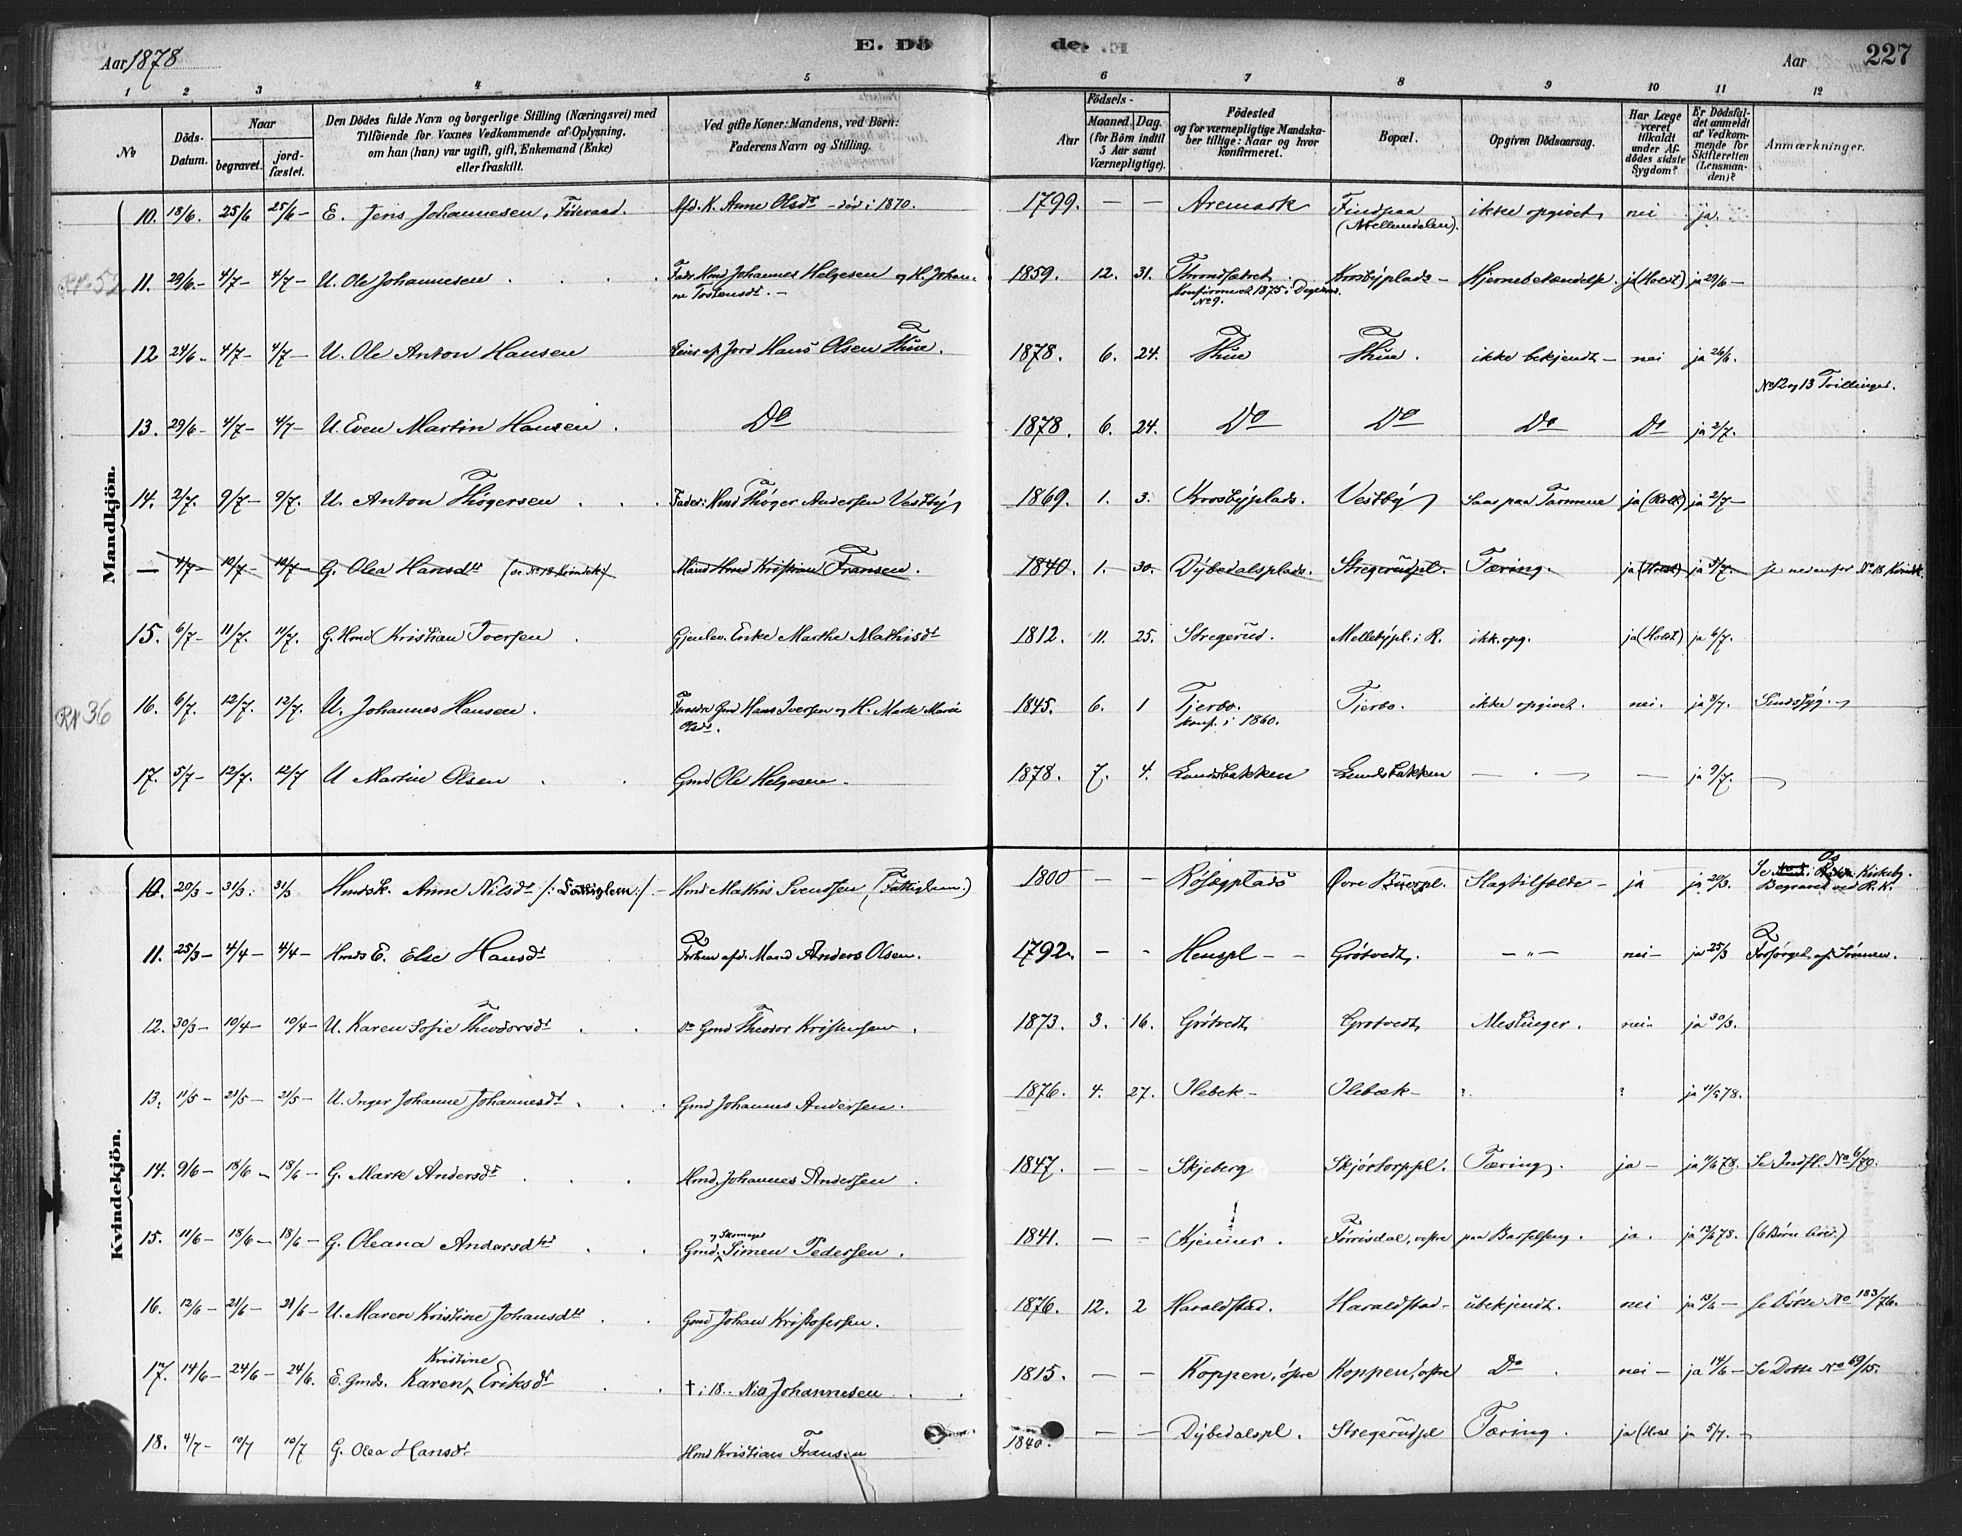 Aar 1878
E. Dö
de.
Aar
227
1 2 3 4 5 6 7 8 9 10 11 12
No
Döds-Datum.
Naar
begravet.
jord-fæstet.
Den Dödes fulde Navn og borgerlige Stilling (Næringsvei) med
Tilföiende for Voxnes Vedkommende af Oplysning,
om han (hun) var ugift, gift, Enkemand (Enke)
eller fraskilt.
Ved gifte Koner: Mandens, ved Börn:
Faderens Navn og Stilling.
Födsels-
Aar
Maaned. Dag.
(for Börn indtil
5 Aar samt
Værnepligtige).
Födested
og for værnepligtige Mandska-
ber tillige: Naar og hvor
konfirmeret.
Bopæl.
Opgiven Dödsaarsag.
Har Læge
været
tilkaldt
under Af-
dödes sidste
Sygdom?
Er Dödsfal-
det anmeldt
af Vedkom-
mende for
Skifteretten
(Lensman-
den)?
Anmærkninger.
Mandkjön.
10. 18/6. 25/6 25/6- E. Jens Johannesen, Föderaad. Afd. K. Anne Olsdt - död i 1870. 1799. - - Aremark ikke opgivet, nei ja.
(Mellemdalen).
RN. 52
11. 29/6- 4/7- 4/7- U. Ole Johannesen Fader Hmd Johannes Helgesen og H. Johan-
ne Torstensdt. - 1859. 12. 31. Krosbyplads- Hjernebetændelse. ja (Holst) ja 29/6-
Konfirmeret 1875 i
No 9.
12 24/6- 4/7- 4/7- U. Ole Anton Hansen Leier af Jord Hans Olsen Thue. 1878. 6. 24. Thue Thue. ikke bekjendt- nei ja 26/6.
No 12 og 13 Tvillinger.
13. 29/6- 4/7- 4/7- U. Even Martin Hansen. Do 1878. 6. 24. Do Do Do Do ja 2/7.
14. 2/7. 9/7- 9/7. U. Anton Thögersen Fader: Hmd Thöger Andersen Vestby 1869. 1. 3. Krosbyplads. Vestby Saar paa Tarmene ja (Holst) ja 2/7-
- 4/7- 10/7- 10/7- G. Olea Hansdt (se No 18 Kvindek.) Mand Hmd Kristian Fransen. 1840. 1. 30. Dybedalsplads. Stregerudpl. Tæring. ja (Holst) ja 5/7. se nedenfor No 18 Kvindek.
15. 6/7- 11/7. 11/7. G. Hmd Kristian Iversen Gjenlev. Enke Marthe Mathisdt 1812. 11. 25. Stregerud. Mellebypl. i R. ikke opg. ja (Holst) ja 6/7.
RN 36
16. 6/7. 12/7. 12/7. U. Johannes Hansen. Forældre Gmd Hans Iversen og H. Marte Marie
Olsdt. 1845. 6. 1 Tjerbo. Tjerbo. ikke opgivet. nei. ja 8/7. Sindssyg.
konf. i 1860.
17. 5/7- 12/7. 12/7 U Martin Olsen Gmd Ole Helgesen. 1878. 7. 4. Lundsbakken Lundsbakken - - ja 9/7.
Kvindekjön.
10. 20/3- 31/3. 31/3 Hmdsk. Anne Nilsdt /: Fattiglem :/ - Hmd Mathis Svendsen (Fattiglem.) 1800 - Slagtilfælde- ja ja 20/3. Se Kirkeby.
Begravet ved R.K.
11. 25/3- 4/4- 4/4- Hmds E. Elie Hansdt Forhen afd. Mand Anders Olsen. 1792. - - Henspl- Grötvedt. - " - nei- ja 25/3 Forsörget af Sönnen.
12. 30/3- 10/4- 10/4- U. Karen Sofie Theodorsdt Do Gmd Theodor Kristensen. 1873. 3. 16. Grötvedt Grotvedt Meslinger. nei- ja 30/3.
13. 11/5- 21/5- 21/5- U. Inger Johanne Johannesdt Gmd Johannes Andersen. 1876. 4. 27. Ilebek- Ilebæk- ? ? ja 11/5 78.
14. 9/6- 18/6- 18/6- G. Marte Andersdt Hmd. Johannes Andersen. 1847. - - Skjeberg Skjörtorppl. Tæring. ja- ja 11/6 78. Se Indfl. No 6/79.
15. 11/6- 18/6- 18/6- G. Oleana Andersdtr Gmd og Skomager Simen Pedersen. 1841. - - Kjenner. Förrisdal, vestre paa Barselseng. ja. ja 12/6 78. (6 Börn leve.)
16. 12/6- 21/6- 21/6- U. Maren Kristine Johansdt Gmd Johan Kristofersen. 1876. 12. 2 Haraldstad. Haraldstad- ubekjendt. nei ja 13/6- se Döbte No 183/76.
17. 14/6- 24/6- 24/6. E. Gmds. Karen Kristine Eriksdt † i 18.. Nils Johannesen 1815. - - Koppen, östre Koppen, östre Do nei- ja 14/6- Se Dobte No 69/15.
18. 4/7- 10/7 10/7 G. Olea Hansdt Hmd Kristian Fransen 1840. - - Dybedalspl. Stregerudpl Tæring. ja (Holst ja 5/7.-